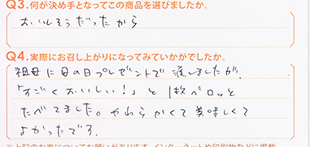 Q3.何が決め手となってこの商品を選びましたか。
おいしそうだったから
Q4.実際にお召し上がりになってみていかがでしたか。
祖母に母の日プレゼントで渡しましたが、
「すごくおいしい!」と1枚ペロッと
たべてました。やわらかくて美味しくて
よかったです。